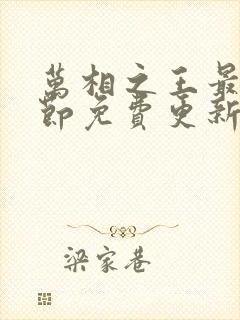 萬相之王最
節免費更新
梁家巷